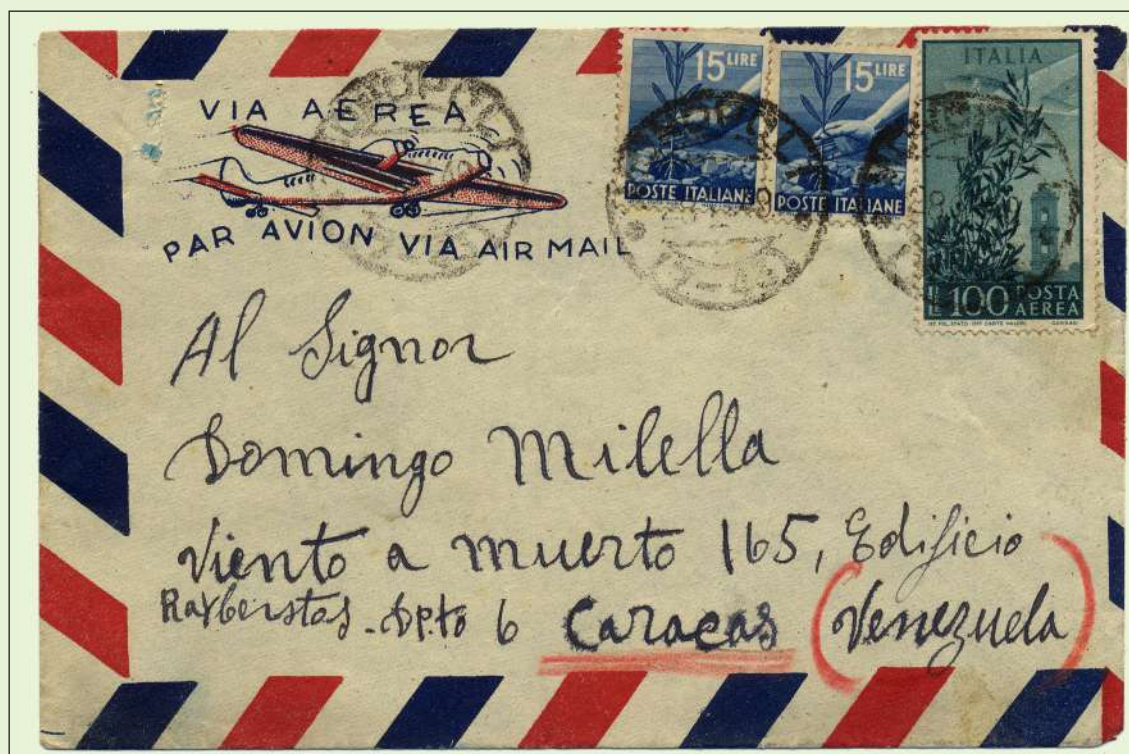 VIA AEREA
PAR AVION VIA AIR MAIL
15 LIRE
POSTE ITALIANE
15 LIRE
POSTE ITALIANE
ITALIA
L. 100 POSTA
AEREA
Al Signor
Domingo Milella
Viento a muerto 165, Edificio
Dpto 6 Caracas (Venezuela)